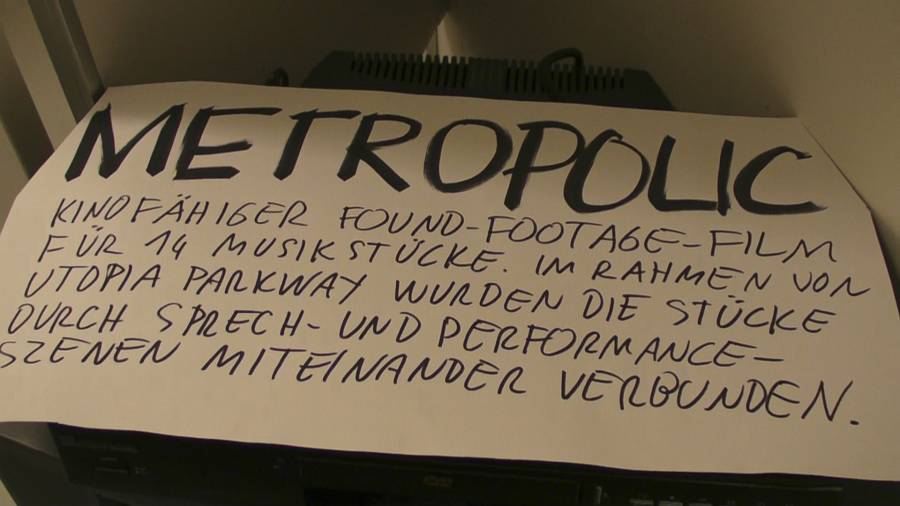 METROPOLIC
KINOFÄHIGER FOUND-FOOTAGE-FILM
FÜR 14 MUSIKSTÜCKE. IM RAHMEN VON
UTOPIA PARKWAY WURDEN DIE STÜCKE
DURCH SPRECH- UND PERFORMANCE-
SZENEN MITEINANDER VERBUNDEN.